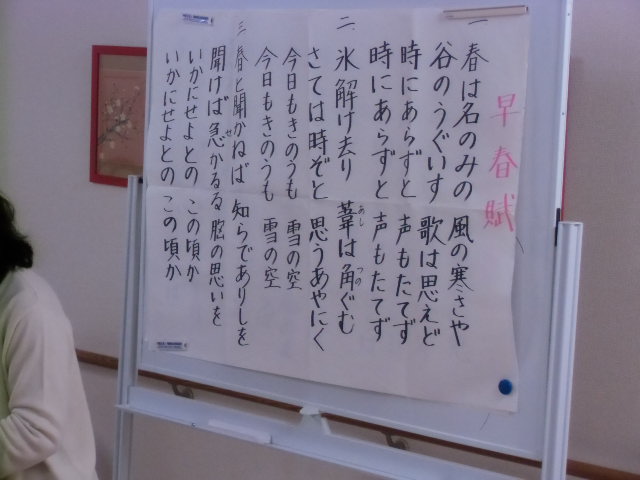 早春賦
一 春は名のみの 風の寒さや
谷のうぐいす 歌は思えど
時にあらずと 声もたてず
時にあらずと 声もたてず
二 氷解け去り 葦は角ぐむ
あし つの
さては時ぞと 思うあやにく
今日もきのうも 雪の空
今日もきのうも 雪の空
三 春と聞かねば 知らでありしを
聞けば急かるる 胸の思いを
せ
いかにせよとの この頃か
いかにせよとの この頃か